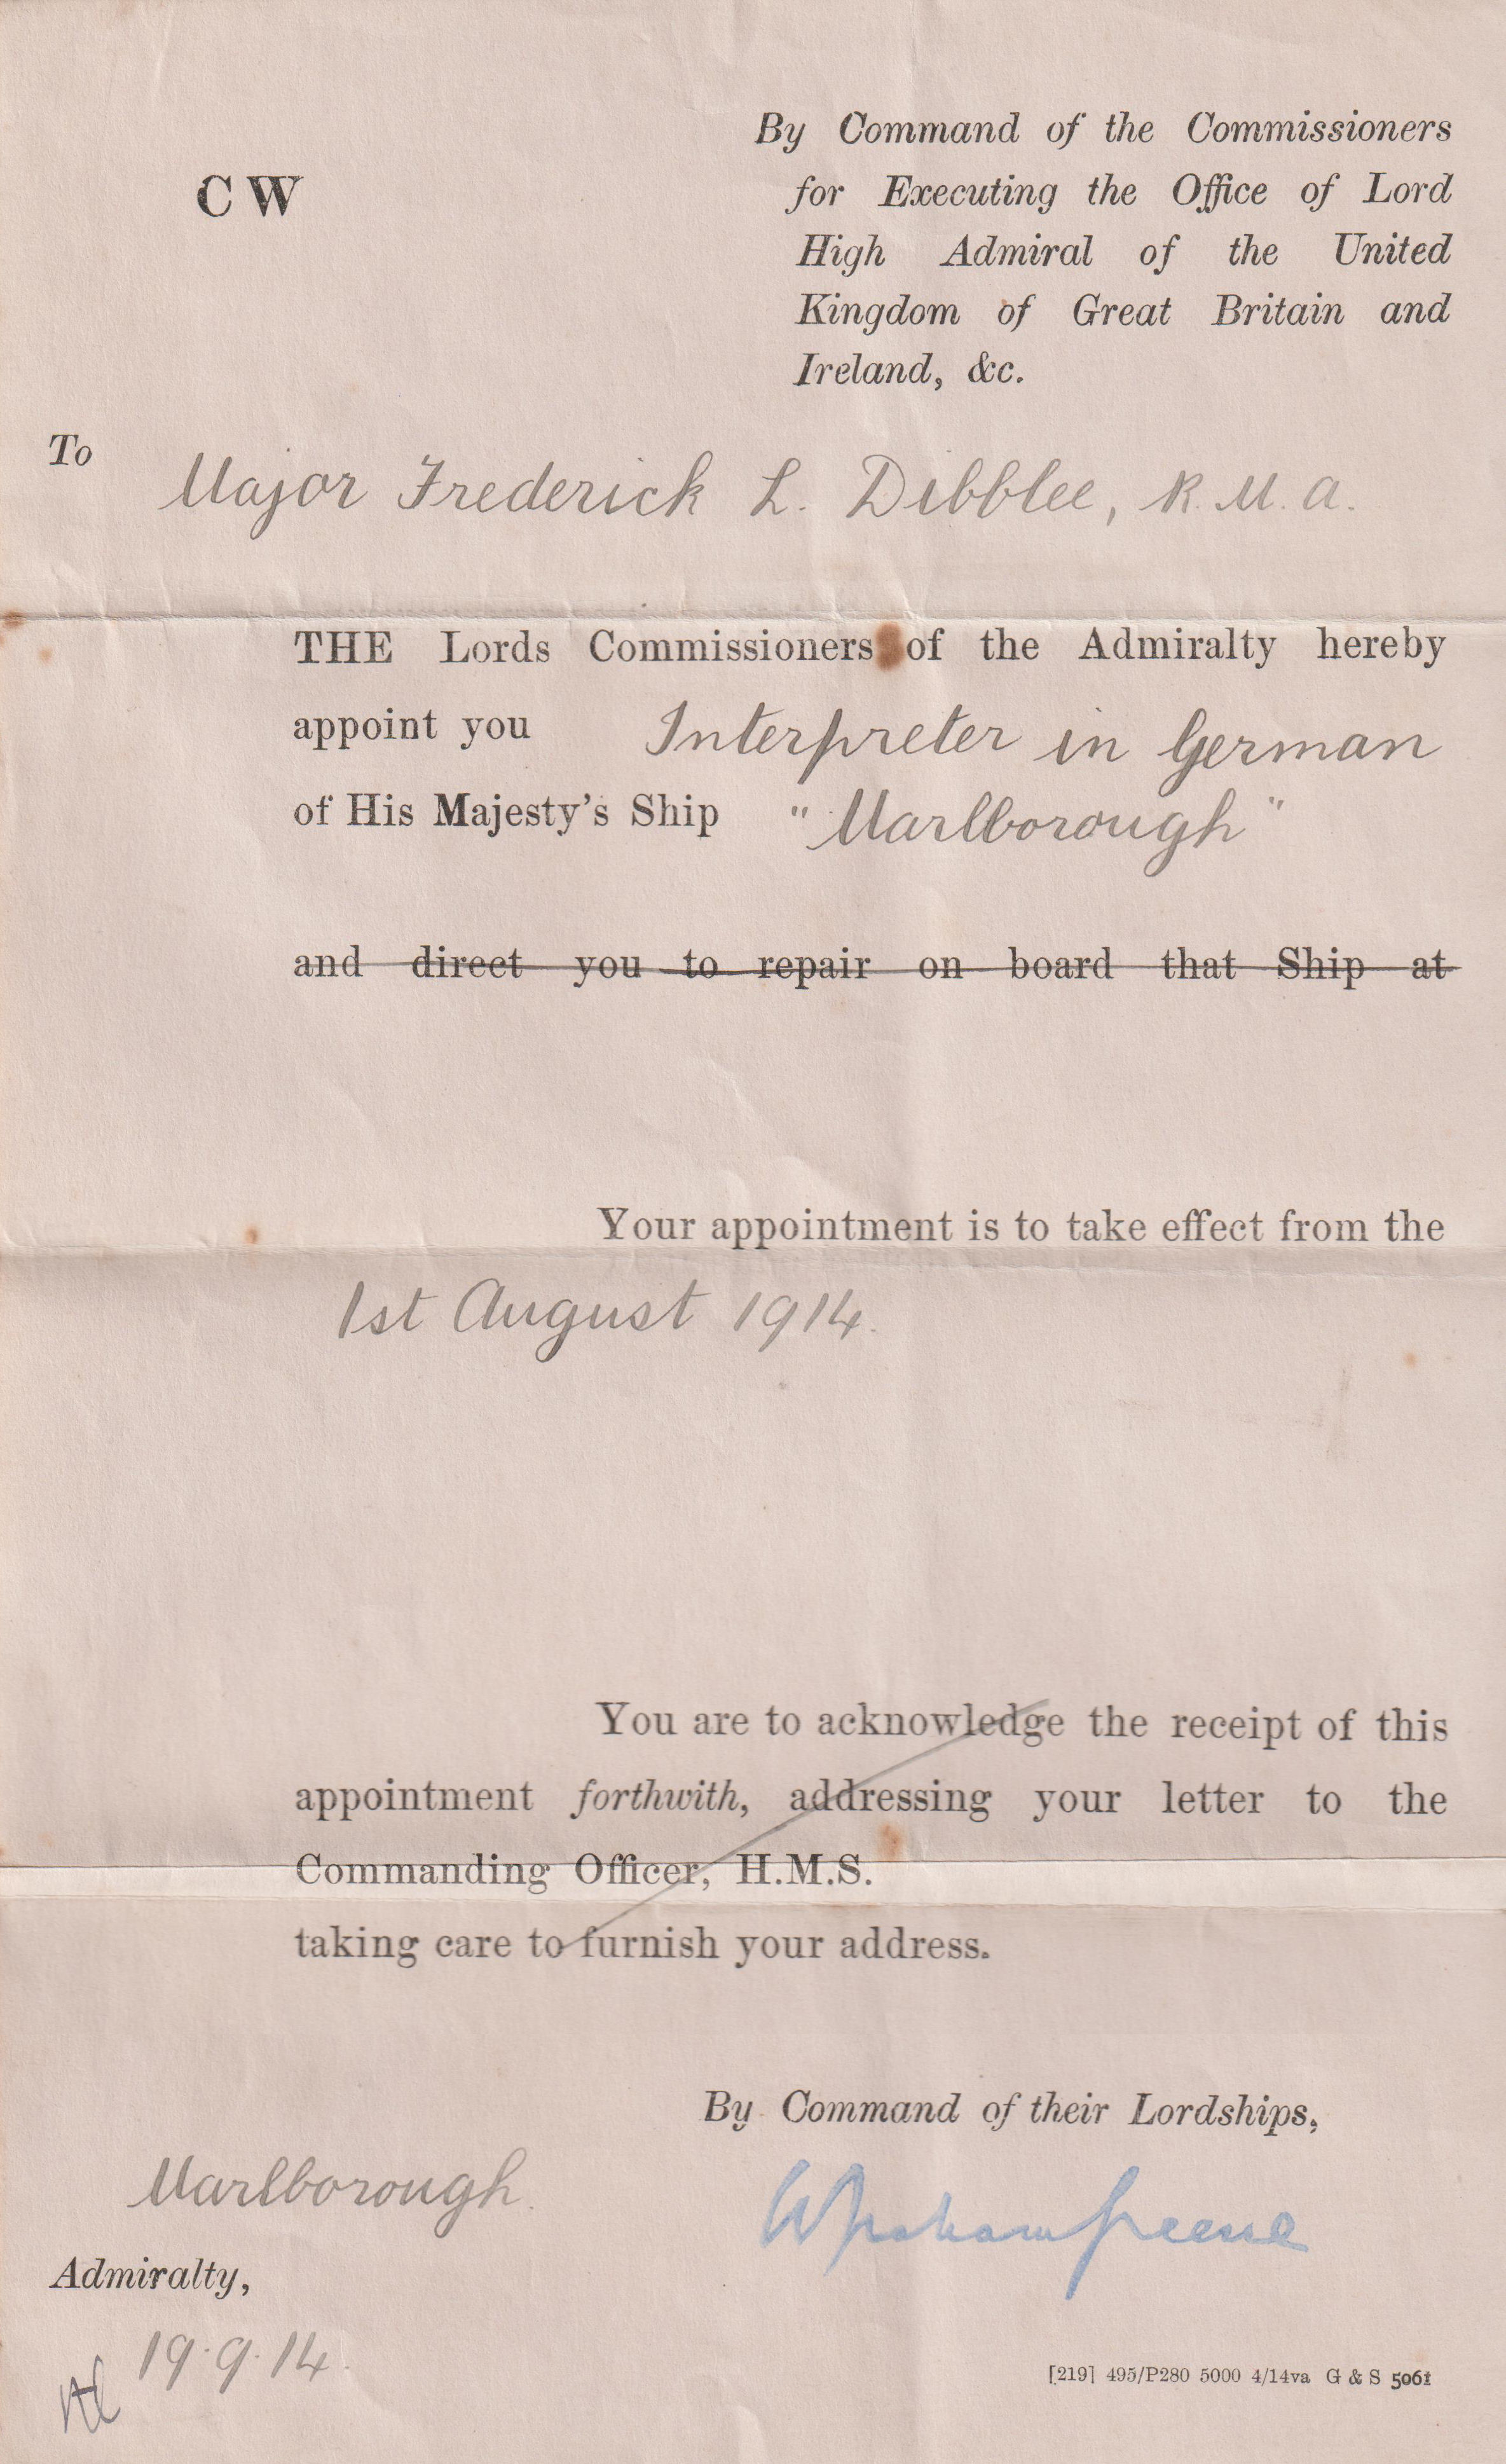 By Command of the Commissioners
C W
for Executing the Office of Lord
High Admiral of the United
Kingdom of Great Britain and
Ireland, &c.
To
Major Frederick L. Dibblee, R.M.A.
THE Lords Commissioners of the Admiralty hereby
appoint you Interpreter in German
of His Majesty's Ship "Marlborough"
and direct you to repair on board that Ship at
Your appointment is to take effect from the
1st August 1914.
You are to acknowledge the receipt of this
appointment forthwith, addressing your letter to the
Commanding Officer, H.M.S.
taking care to furnish your address.
By Command of their Lordships,
Marlborough.
W Graham Greene
Admiralty,
19.9.14.
[219] 495/P280 5000 4/14va G & S 5061